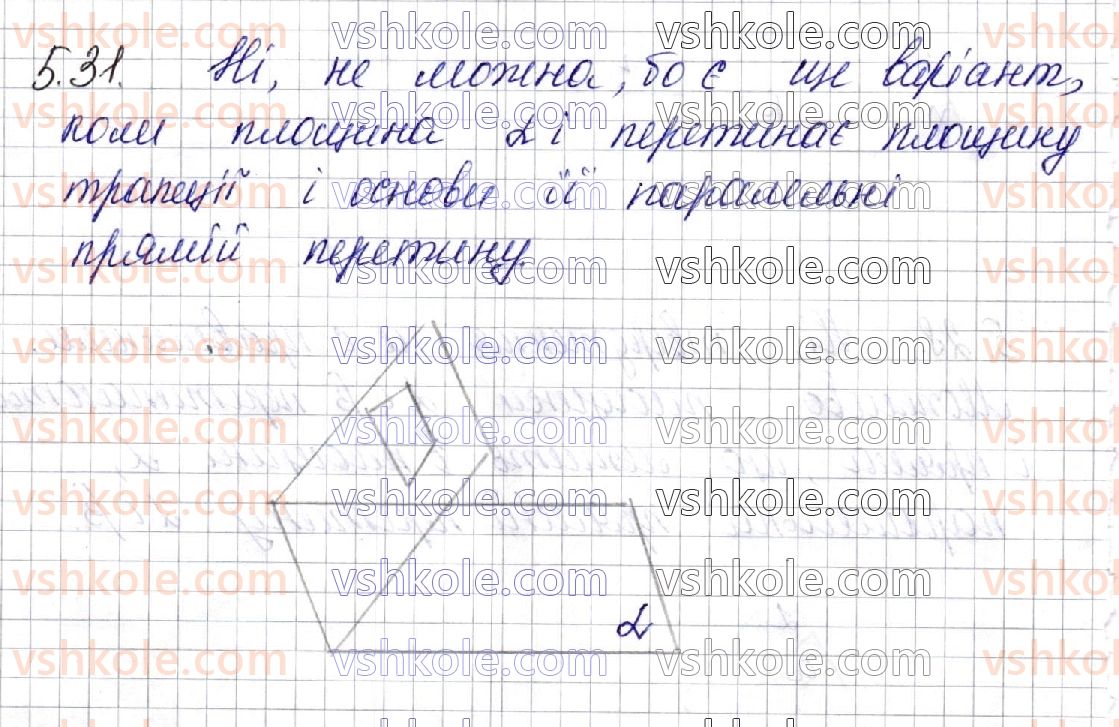 5.31. Ні, не можна, бо є ще варіант,
коли площина α і перетинає площину
трапеції і основи її паралельні
прямій перетину.
α
vshkole.com